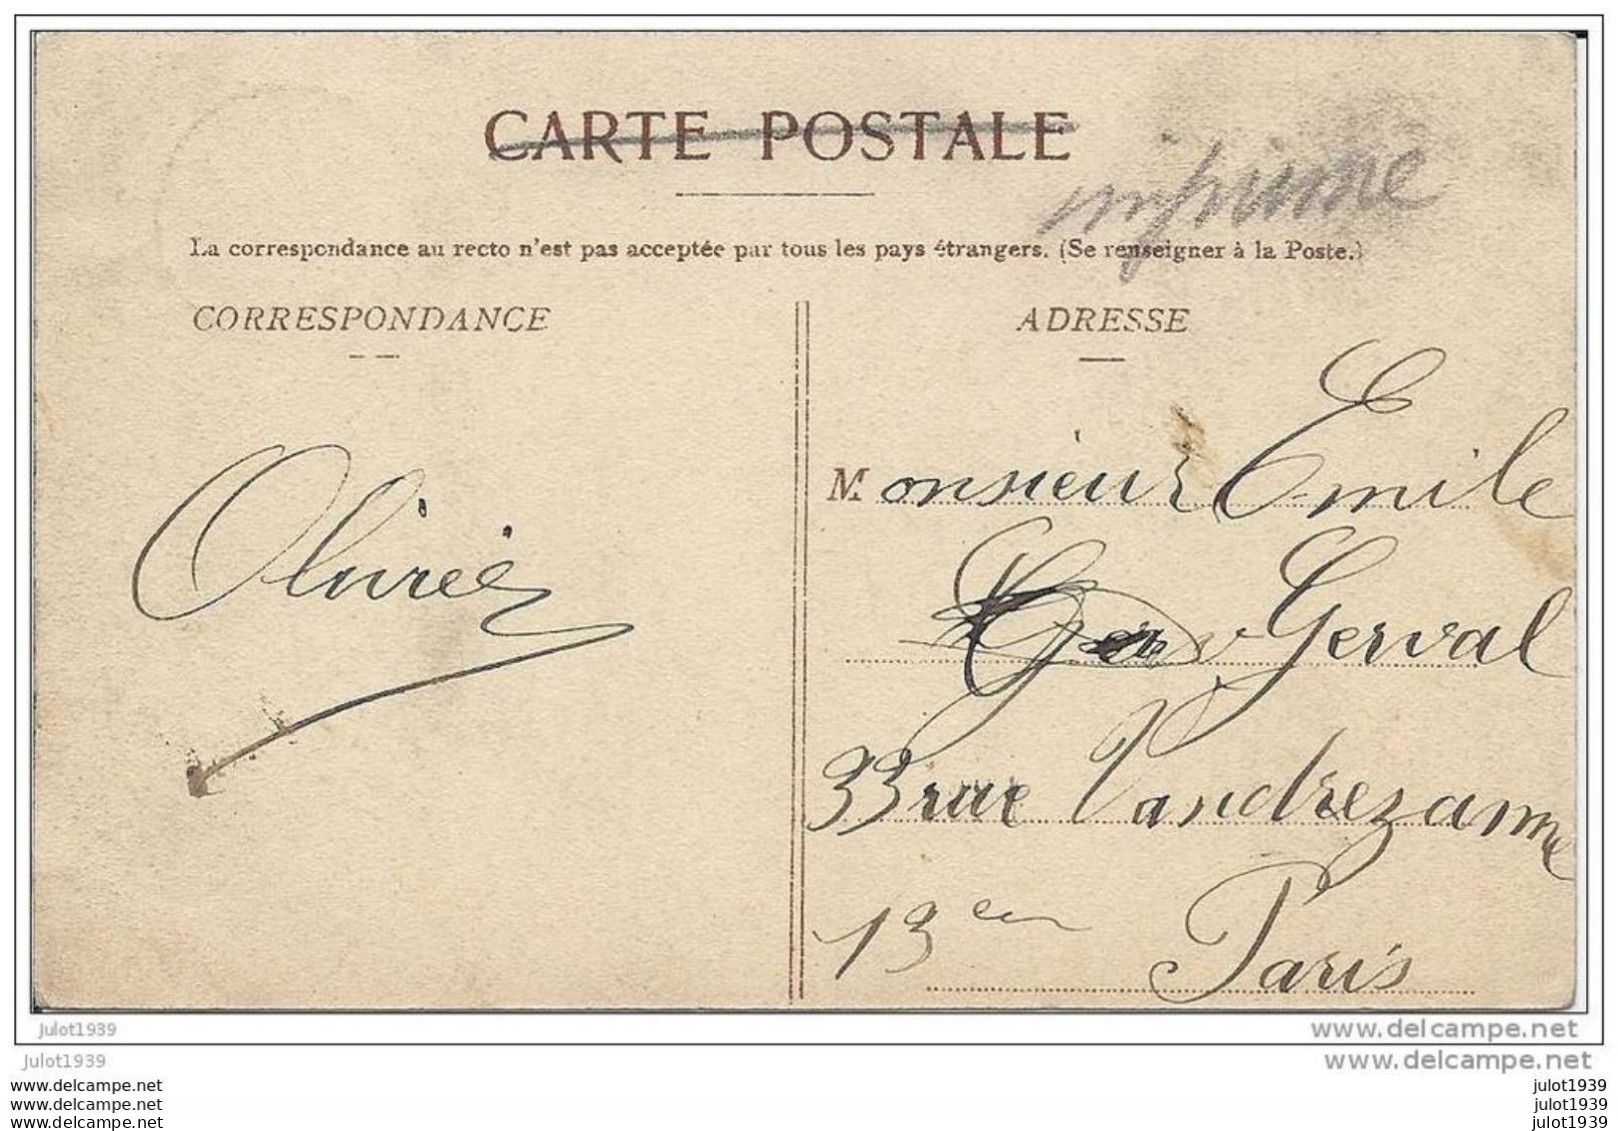 CARTE POSTALE
imprimé
La correspondance au recto n'est pas acceptée par tous les pays étrangers. (Se renseigner à la Poste.)
CORRESPONDANCE
ADRESSE
Monsieur Emile
Gerval
33 rue Vandrezanne
13em Paris
Julot1939
www.delcampe.net
Julot1939
www.delcampe.net
www.delcampe.net
julot1939
www.delcampe.net
julot1939
www.delcampe.net
julot1939